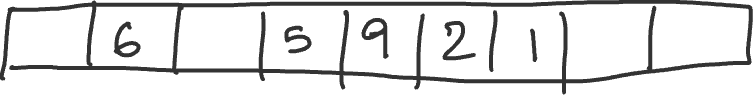 6 5 9 2 1